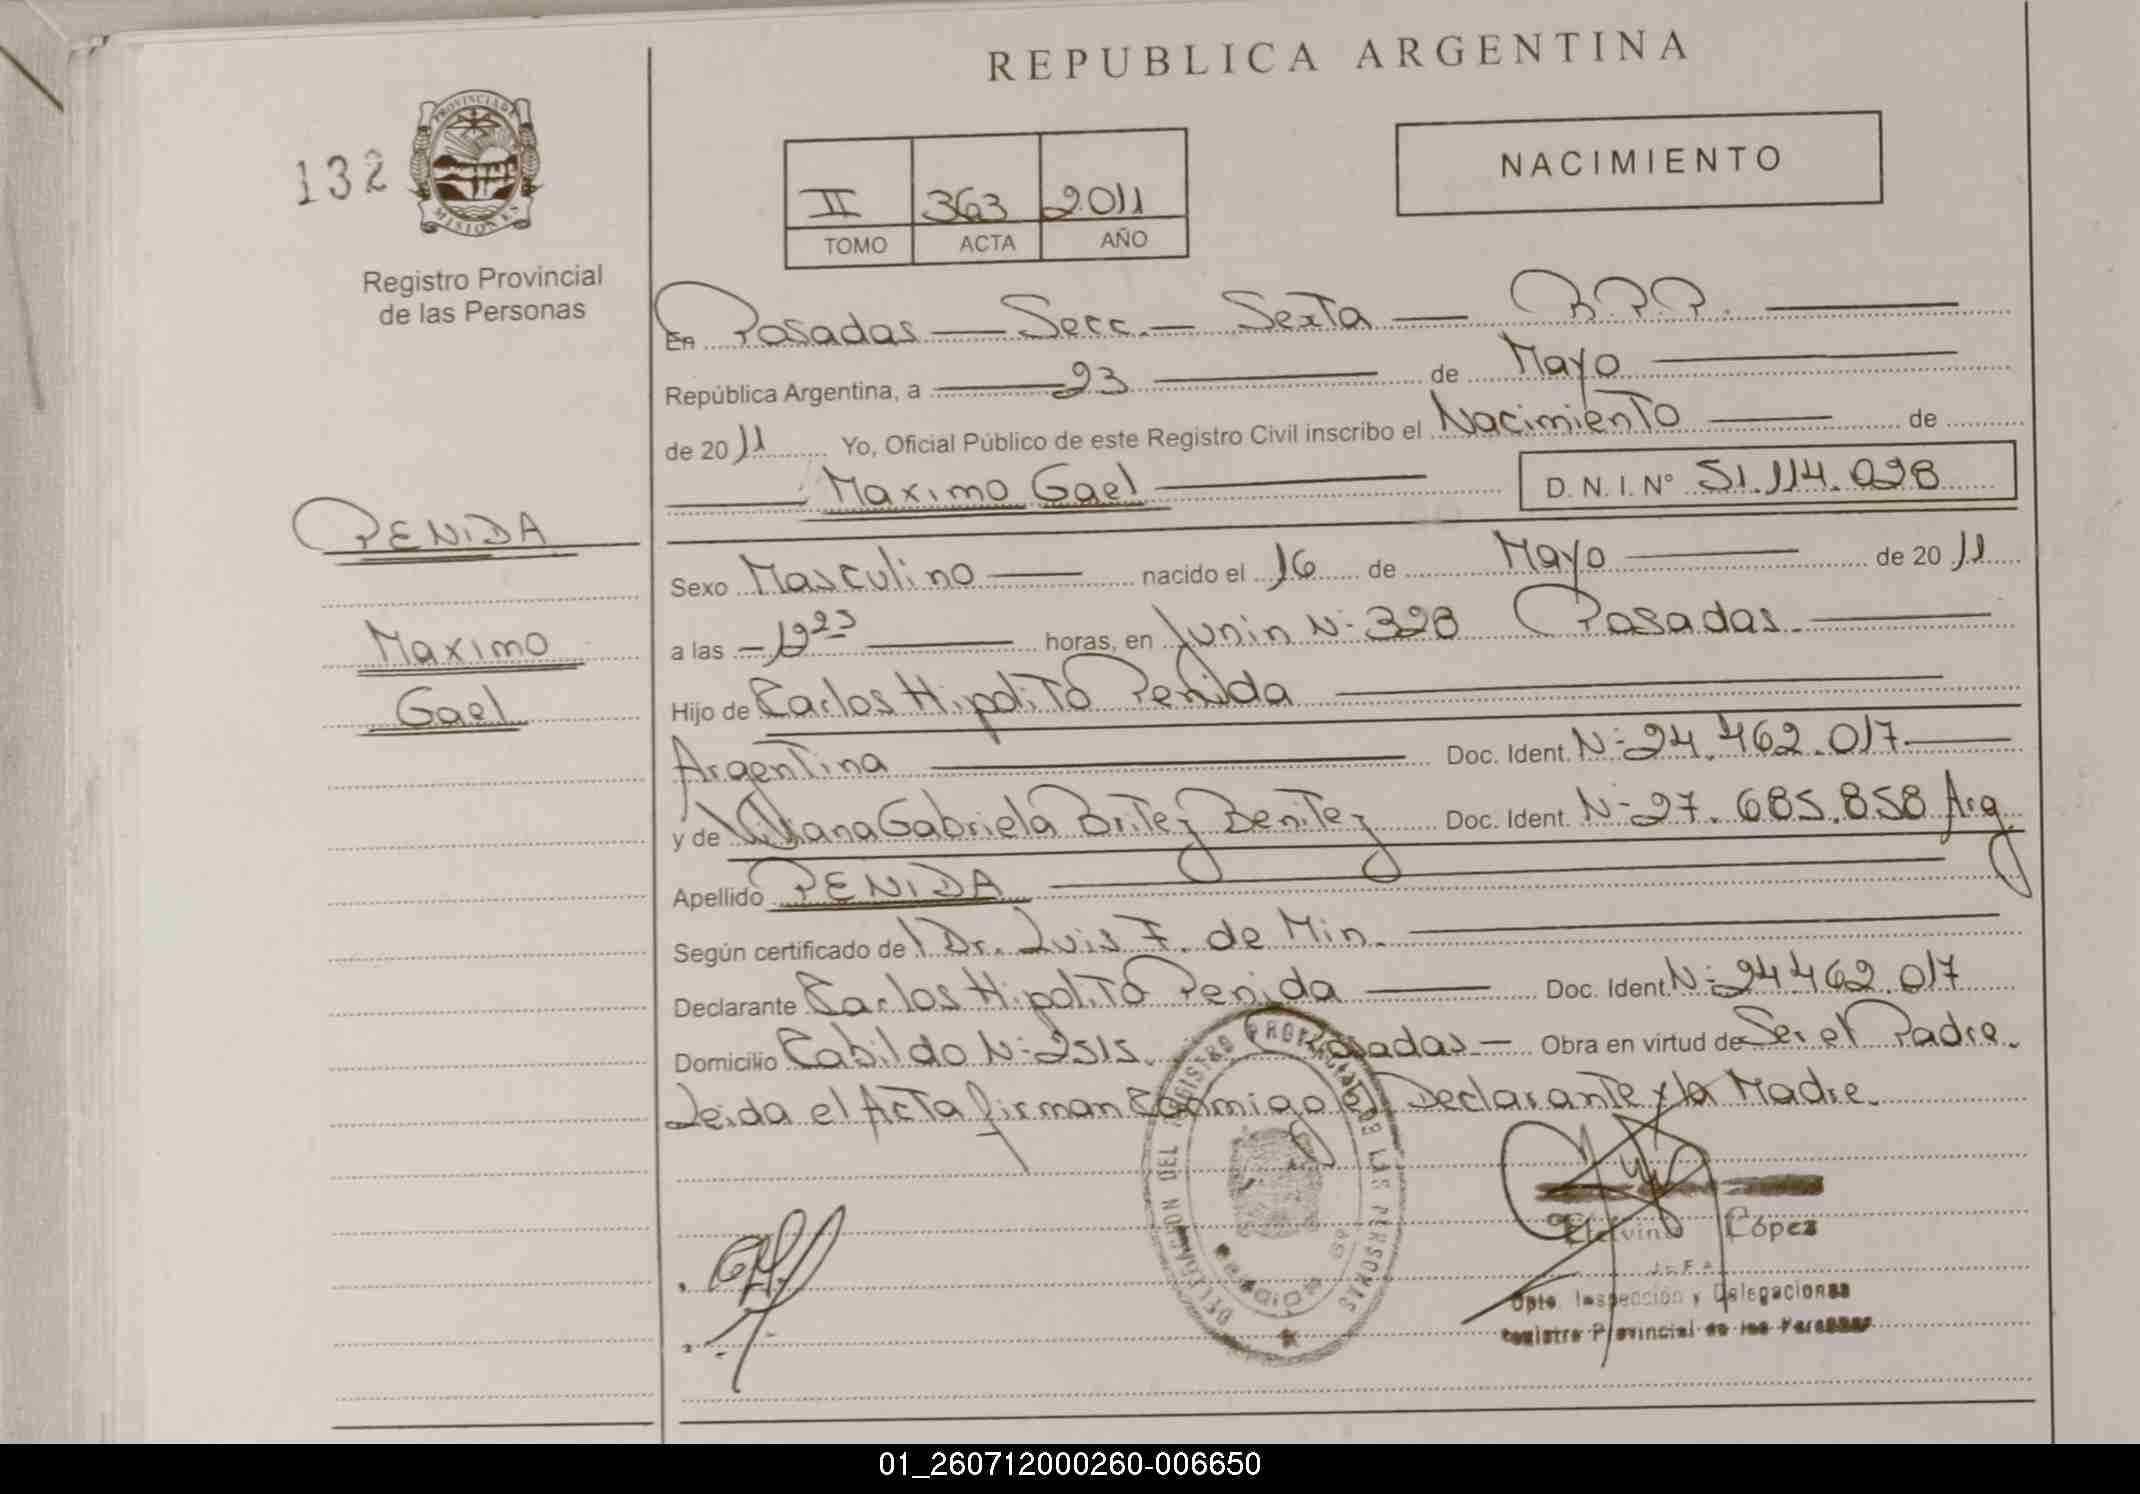 REPUBLICA ARGENTINA
132
PROVINCIA DE
MISIONES
Registro Provincial
de las Personas
II 363 2011
TOMO ACTA AÑO
NACIMIENTO
En Posadas — Secc. — Sexta — R.P.P. —
República Argentina, a — 23 — de Mayo —
de 2011 Yo, Oficial Público de este Registro Civil inscribo el Nacimiento — de
— Maximo Gael — D. N. I. N° 51.114.028
PENIDA
Maximo
Gael
Sexo Masculino — nacido el 16 de Mayo — de 2011
a las — 12 23 — horas, en Junin N- 328 Posadas. —
Hijo de Carlos Hipolito Penida —
Argentina — Doc. Ident. N- 24.462.017 —
y de Viviana Gabriela Britez Benitez Doc. Ident. N- 27.685.858 Arg
Apellido PENIDA —
Según certificado del Dr. Luis F. de Min. —
Declarante Carlos Hipolito Penida — Doc. Ident. N- 24.462.017
Domicilio Cabildo N- 2515. Posadas — Obra en virtud de Ser el Padre.
Leida el Acta firman Conmigo el Declarante y la Madre.
DELEGACION DEL REGISTRO PROVINCIAL DE LAS PERSONAS
López
JEFA
Dpto. Inspección y Delegaciones
Registro Provincial de las Personas
01_260712000260-006650